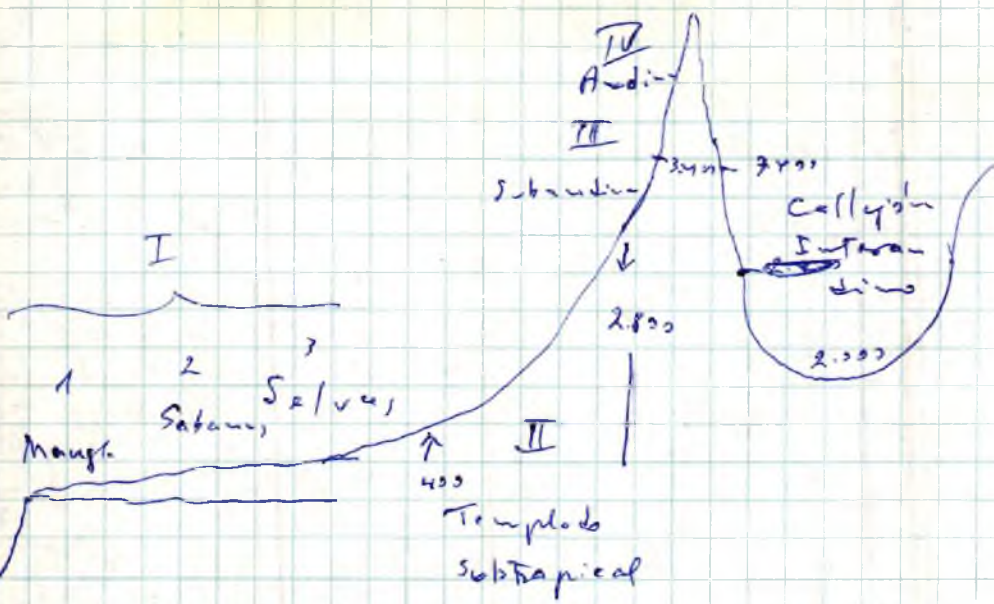 IV
Andin
III
Subandin
Callejón
Interan
dino
I
2.800
2.000
1
2
3
Mangl.
Sabanas
Selvas
II
400
Templado
subtropical